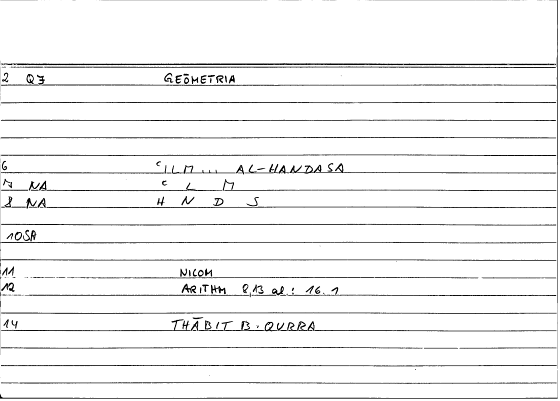 2 QZ GEŌMETRIA
6 ʿILM... AL-HANDASA
7 NA ʿ L M
8 NA H N D S
10SA
11 NICOM
12 ARITHM 8,13 al: 16.1
14 THĀBIT B. QURRA